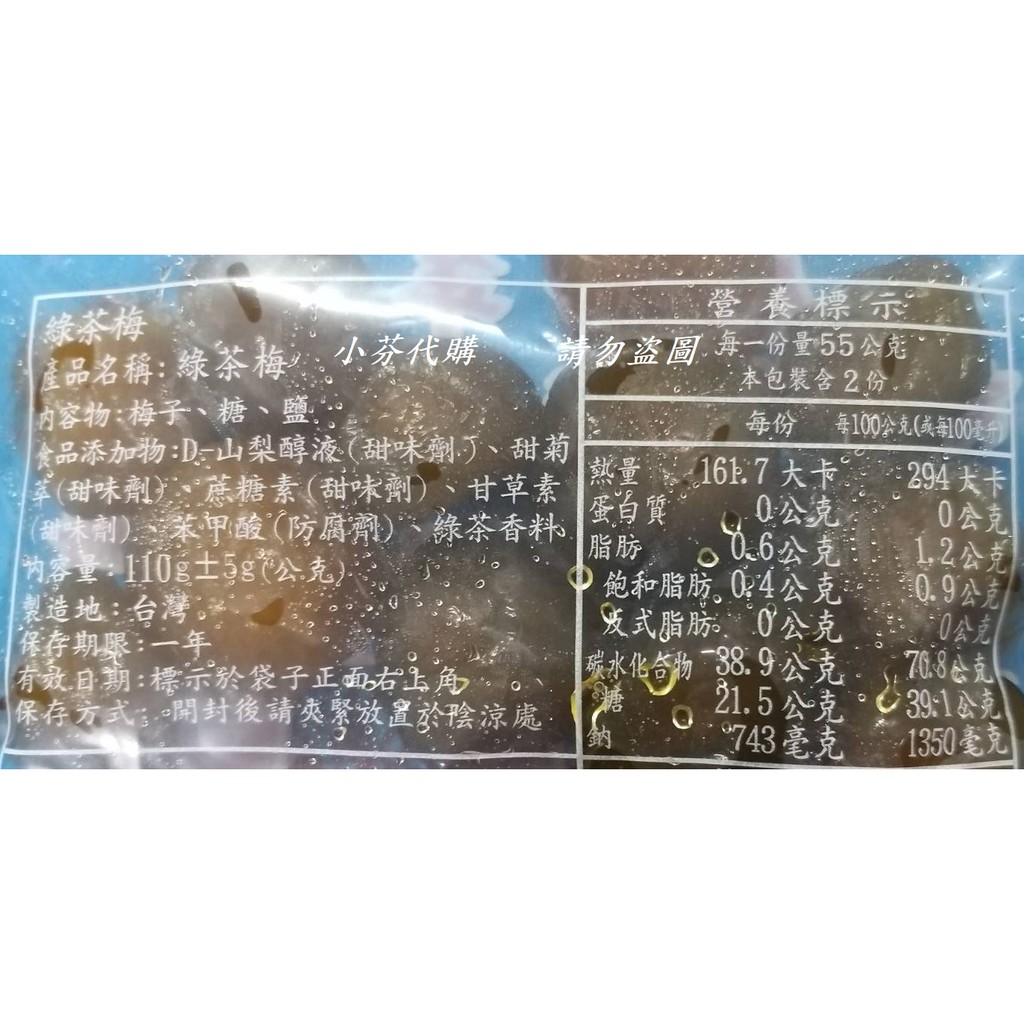 綠茶梅
產品名稱:綠茶梅
內容物:梅子、糖、鹽
食品添加物:D-山梨醇液(甜味劑)、甜菊
萃(甜味劑)、蔗糖素(甜味劑)、甘草素
(甜味劑)、苯甲酸(防腐劑)、綠茶香料
內容量:110g±5g(公克)
製造地:台灣
保存期限:一年
有效日期:標示於袋子正面右上角
保存方式:開封後請夾緊放置於陰涼處
小芬代購 請勿盜圖
營養標示
每一份量55公克
本包裝含2份
每份 每100公克(或每100毫升)
熱量 161.7大卡 294大卡
蛋白質 0公克 0公克
脂肪 0.6公克 1.2公克
飽和脂肪 0.4公克 0.9公克
反式脂肪 0公克 0公克
碳水化合物 38.9公克 70.8公克
糖 21.5公克 39.1公克
鈉 743毫克 1350毫克